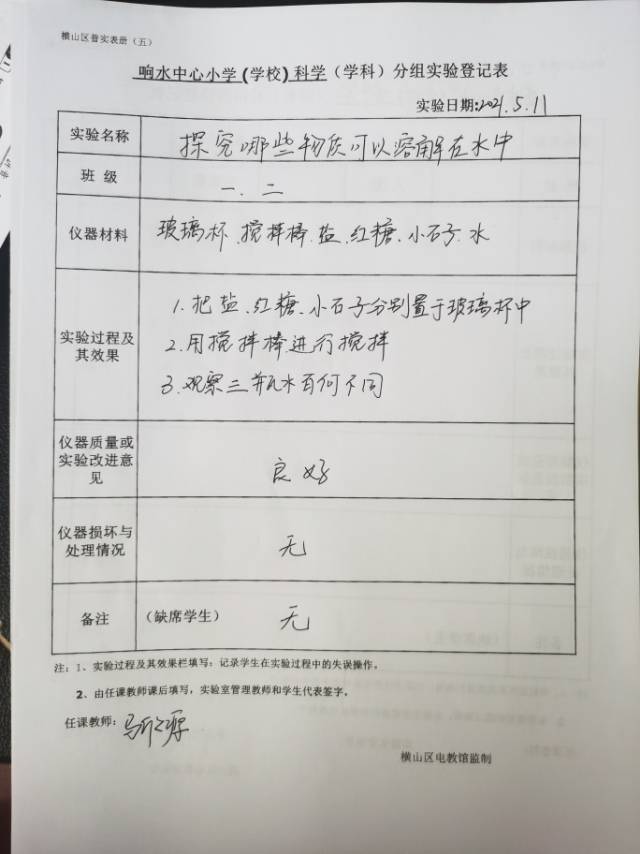 横山区普实表册（五）
响水中心小学 (学校) 科学 （学科）分组实验登记表
实验日期:2021.5.11
实验名称 探究哪些物质可以溶解在水中
班 级 一、二
仪器材料 玻璃杯、搅拌棒、盐、红糖、小石子、水
实验过程及
其效果
1.把盐、红糖、小石子分别置于玻璃杯中
2.用搅拌棒进行搅拌
3.观察三瓶水有何不同
仪器质量或
实验改进意
见
良好
仪器损坏与
处理情况
无
备注 （缺席学生） 无
注：1、实验过程及其效果栏填写：记录学生在实验过程中的失误操作。
2、由任课教师课后填写，实验室管理教师和学生代表签字。
任课教师：
横山区电教馆监制